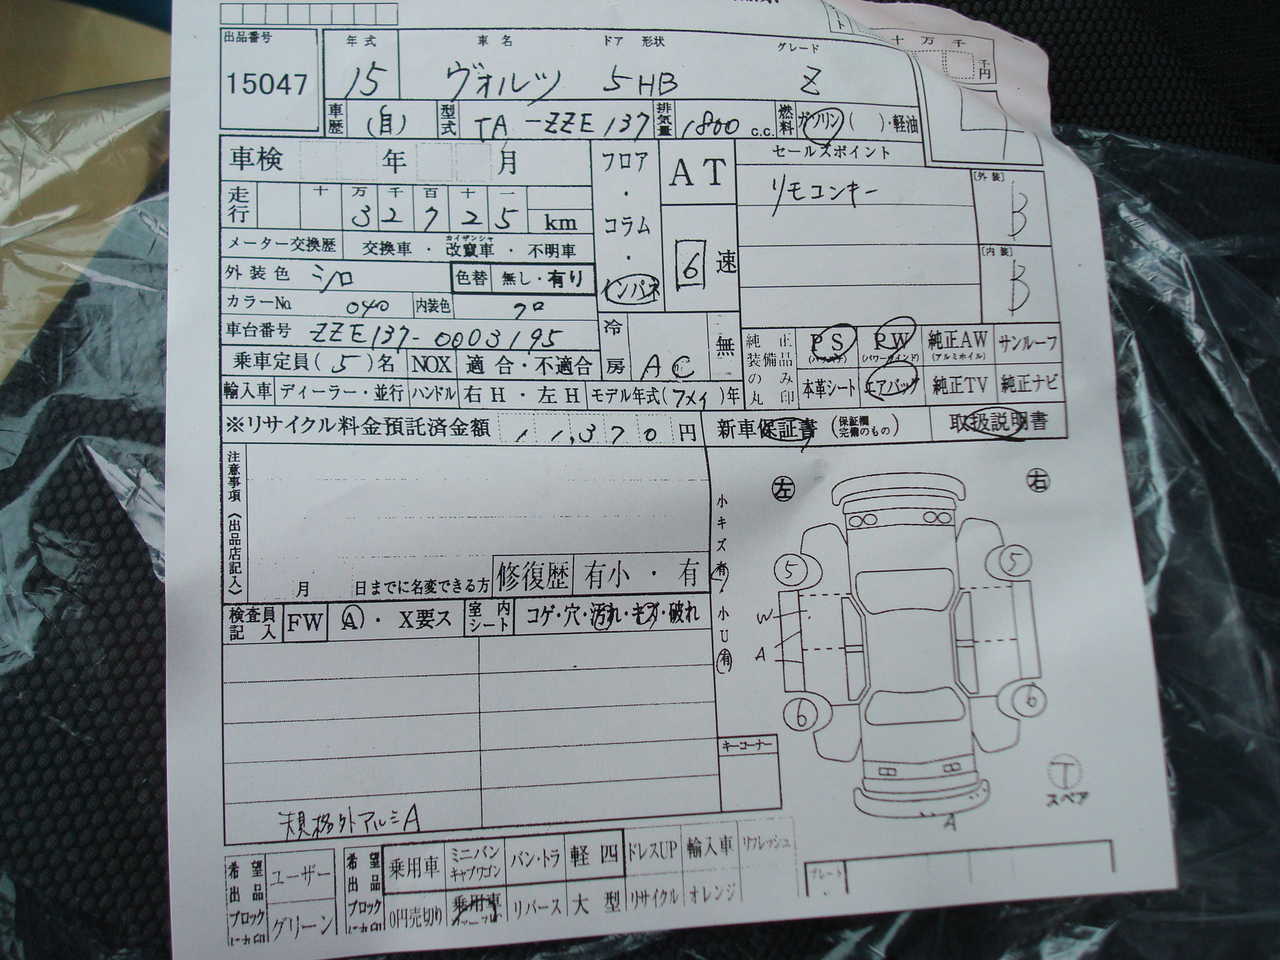 出品番号 年式 車名 ドア 形状 グレード 十 万 千
15047 15 ヴォルツ 5HB Z 千円
4
車歴 (自) 型式 TA-ZZE137 排気量 1800 c.c. 燃料 ガソリン( )・軽油
車検 年 月 フロア・コラム・インパネ AT セールスポイント
リモコンキー
[外装] B
走行 十 万 千 百 十 一
3 2 7 2 5 km
メーター交換歴 交換車・改竄車・不明車
カイザンシャ
6速
[内装] B
外装色 シロ 色替 無し・有り
カラーNo. 040 内装色 クロ
車台番号 ZZE137-0003195 冷房 AC 無
純正装備品のみ丸印 PS PW 純正AW サンルーフ
(パワーウインド) (アルミホイル)
乗車定員(5)名 NOX 適合・不適合
本革シート エアバッグ 純正TV 純正ナビ
輸入車 ディーラー・並行 ハンドル 右H・左H モデル年式( )年
※リサイクル料金預託済金額 11,370円 新車保証書 (保証欄完備のもの) 取扱説明書
注意事項(出品店記入)
月 日までに名変できる方 修復歴 有小・有
小キズ有・小U有
左 右
5 5
W
A
6 6
検査員記入 FW A・X要ス 室内シート コゲ・穴・汚れ・キズ・破れ
キーコーナー
T
スペア
A
規格外アルミA
希望出品ブロックに丸印 ユーザー グリーン
希望出品ブロックに丸印 乗用車 ミニバンキャブワゴン バン・トラ 軽四 ドレスUP 輸入車 リフレッシュ
0円売切り 乗用車 リバース 大型 リサイクル オレンジ
プレート